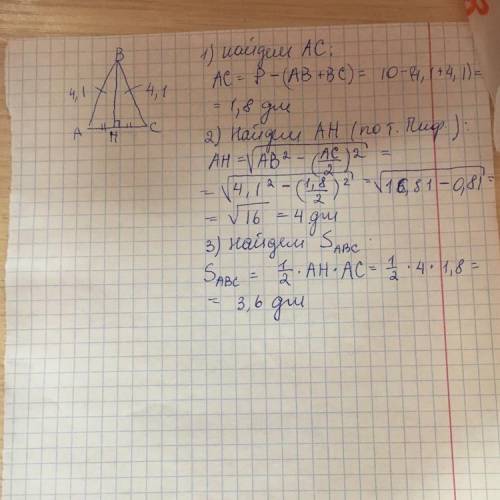 B
4,1 4,1
A H C
1) Найдем AC:
AC = P − (AB + BC) = 10 − (4,1 + 4,1) =
= 1,8 дм
2) Найдем AH (по т. Пиф.):
AH = √(AB² − (AC/2)²) =
= √(4,1² − (1,8/2)²) = √(16,81 − 0,81) =
= √16 = 4 дм
3) Найдем S_ABC:
S_ABC = 1/2 · AH · AC = 1/2 · 4 · 1,8 =
= 3,6 дм